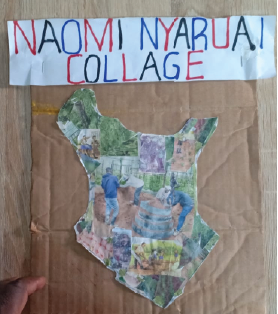 NAOMI NYARUAI
COLLAGE